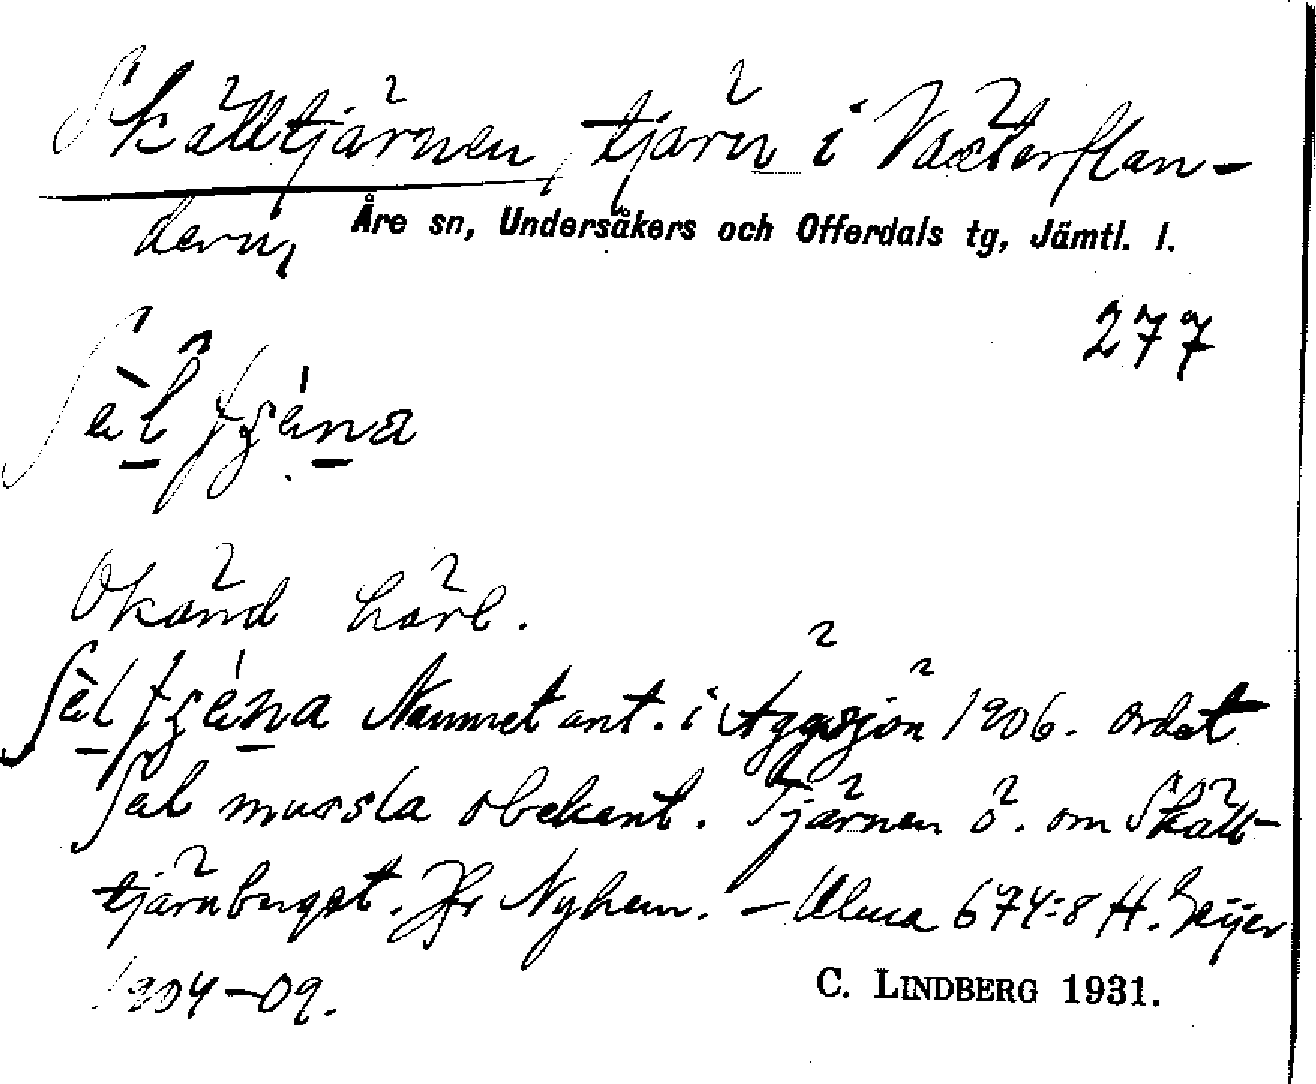 Skälltjärnen, tjärn i Västerflon-
dern,
Åre sn, Undersåkers och Offerdals tg, Jämtl. l.
277
Okänd härl.
Namnet ant. i Äggsjön 1906. ordet
mussla obekant. Tjärnen ö. om Skäll-
tjärnberget. Jfr Nyhem. – Ulma 674:8 H. Geijer
1904–09.
C. LINDBERG 1931.